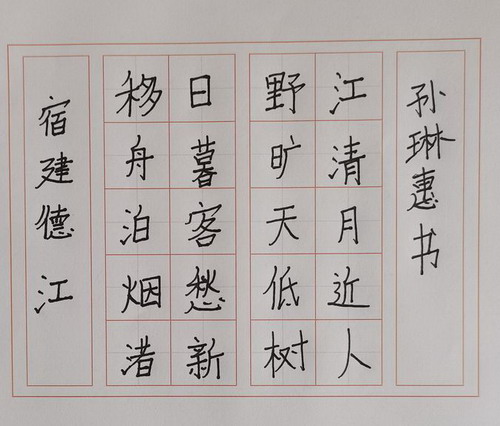 宿建德江
移舟泊烟渚
日暮客愁新
野旷天低树
江清月近人
孙琳惠书